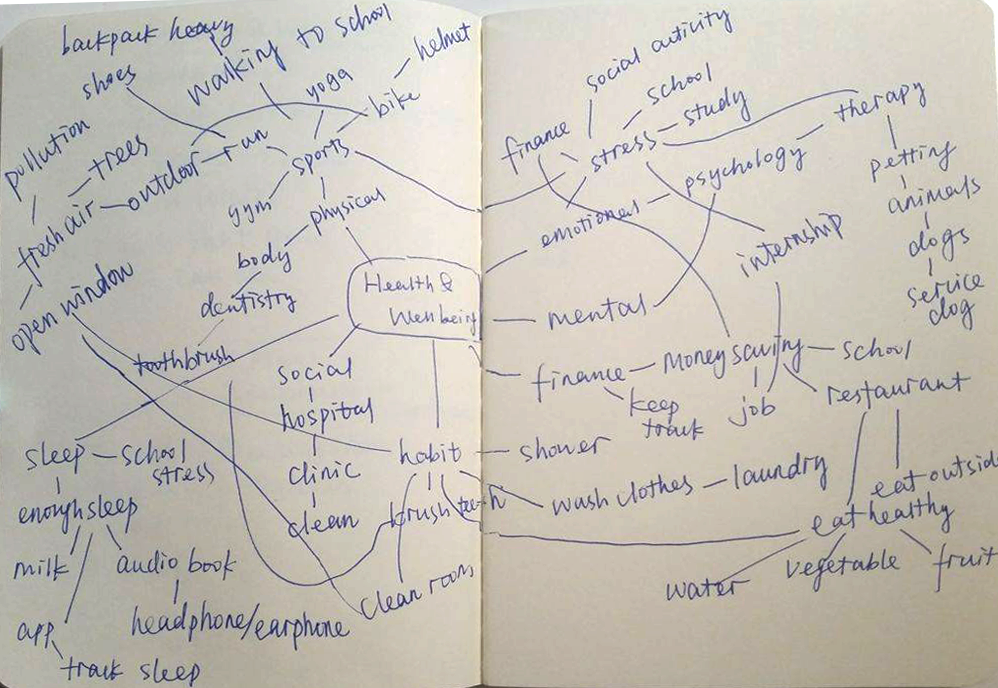 backpack heavy
shoes
walking to school
yoga
helmet
bike
pollution
trees
outdoor
run
sports
fresh air
gym
physical
open window
body
dentistry
toothbrush
Health &
Wellbeing
social
hospital
clinic
clean
sleep
school
stress
enough sleep
milk
audio book
headphone/earphone
app
track sleep
habit
brush teeth
clean room
social activity
school
study
finance
stress
therapy
psychology
emotional
internship
petting
animals
dogs
service
dog
mental
finance
money saving
school
keep
track
job
restaurant
shower
wash clothes
laundry
eat outside
eat healthy
water
vegetable
fruit